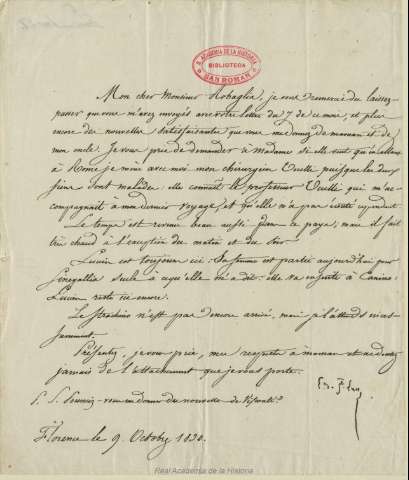 R. ACADEMIA DE LA HISTORIA
BIBLIOTECA
SAN ROMAN
Mon cher Monsieur Robaglia, je vous remercie du laissez-
passer que vous m'avez envoyé avec votre lettre du 7 de ce mois, et plus
encore des nouvelles satisfaisantes que vous me donnez de maman et de
mon oncle. Je vous prie de demander à Madame si elle veut qu'en allant
à Rome je mène avec moi mon chirurgien puisque les deux
sont malades: elle connait le professeur qui m'ac-
compagnait à mon dernier voyage, et qu'elle n'a pas
Le temps est revenu beau aussi dans ce pays, mais il fait
très chaud à l'exception du matin et du soir.
Lucien est toujours ici: Sa femme est partie aujourd'hui pour
Sinegallia seule à ce qu'elle m'a dit: elle va ensuite à Canino:
Lucien reste ici encore.
Le n'est pas encore arrivé, mais je l'attends inces-
samment.
Présentez, je vous prie, mes respects à maman et ne doutez
jamais de l'attachement que je vous porte.
P. S. vous me donner des nouvelles de
Florence le 9. Octobre 1830.
Real Academia de la Historia